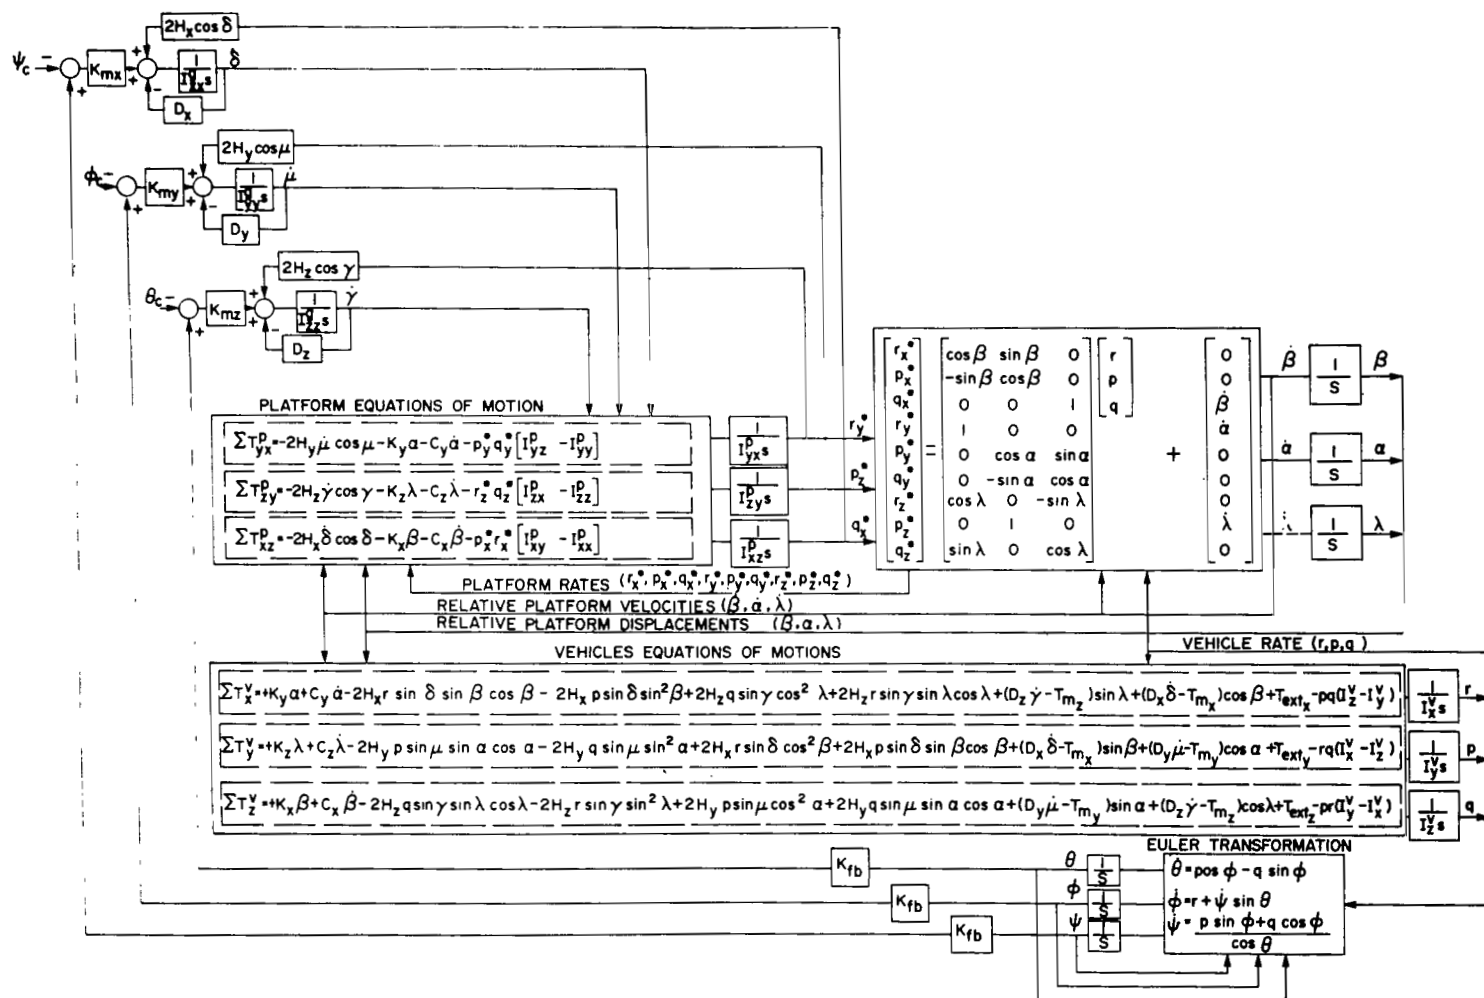 2H_x cos δ
ψ_c − + K_mx + + − 1/(I^g_zx s) δ̇
D_x
2H_y cos μ
ϕ_c − + K_my + + − 1/(I^g_yy s) μ̇
D_y
2H_z cos γ
θ_c − + K_mz + + − 1/(I^g_zz s) γ̇
D_z
PLATFORM EQUATIONS OF MOTION
ΣT^p_yx = −2H_y μ̇ cos μ − K_y α − C_y α̇ − p*_y q*_y [I^p_yz − I^p_yy]
ΣT^p_zy = −2H_z γ̇ cos γ − K_z λ − C_z λ̇ − r*_z q*_z [I^p_zx − I^p_zz]
ΣT^p_xz = −2H_x δ̇ cos δ − K_x β − C_x β̇ − p*_x r*_x [I^p_xy − I^p_xx]
1/(I^p_yx s) r*_y
1/(I^p_zy s) p*_z
1/(I^p_xz s) q*_x
r*_x cos β sin β 0 r 0
p*_x −sin β cos β 0 p 0
q*_x 0 0 1 q β̇
r*_y 1 0 0 α̇
p*_y = 0 cos α sin α + 0
q*_y 0 −sin α cos α 0
r*_z cos λ 0 −sin λ 0
p*_z 0 1 0 λ̇
q*_z sin λ 0 cos λ 0
β̇ 1/S β
α̇ 1/S α
λ̇ 1/S λ
PLATFORM RATES (r*_x, p*_x, q*_x, r*_y, p*_y, q*_y, r*_z, p*_z, q*_z)
RELATIVE PLATFORM VELOCITIES (β̇, α̇, λ̇)
RELATIVE PLATFORM DISPLACEMENTS (β, α, λ)
VEHICLE RATE (r, p, q)
VEHICLES EQUATIONS OF MOTIONS
ΣT^v_x = +K_y α + C_y α̇ − 2H_x r sin δ sin β cos β − 2H_x p sin δ sin² β + 2H_z q sin γ cos² λ + 2H_z r sin γ sin λ cos λ + (D_z γ̇ − T_mz) sin λ + (D_x δ̇ − T_mx) cos β + T_extx − pq(I^v_z − I^v_y) 1/(I^v_x s) r
ΣT^v_y = +K_z λ + C_z λ̇ − 2H_y p sin μ sin α cos α − 2H_y q sin μ sin² α + 2H_x r sin δ cos² β + 2H_x p sin δ sin β cos β + (D_x δ̇ − T_mx) sin β + (D_y μ̇ − T_my) cos α + T_exty − rq(I^v_x − I^v_z) 1/(I^v_y s) p
ΣT^v_z = +K_x β + C_x β̇ − 2H_z q sin γ sin λ cos λ − 2H_z r sin γ sin² λ + 2H_y p sin μ cos² α + 2H_y q sin μ sin α cos α + (D_y μ̇ − T_my) sin α + (D_z γ̇ − T_mz) cos λ + T_extz − pr(I^v_y − I^v_x) 1/(I^v_z s) q
EULER TRANSFORMATION
K_fb θ 1/S θ̇ = pos ϕ − q sin ϕ
K_fb ϕ 1/S ϕ̇ = r + ψ̇ sin θ
K_fb ψ 1/S ψ̇ = (p sin ϕ + q cos ϕ)/cos θ